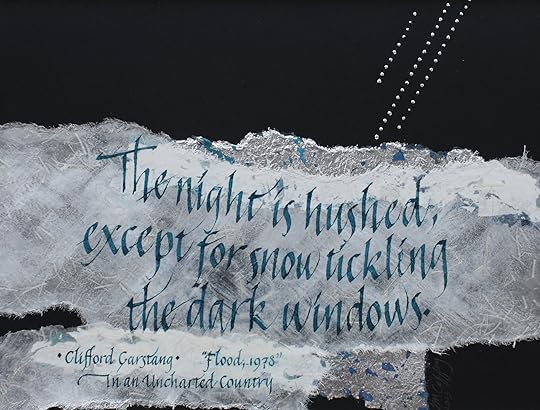 The night is hushed,
except for snow tickling
the dark windows.
• Clifford Garstang • "Flood, 1978"
In an Uncharted Country